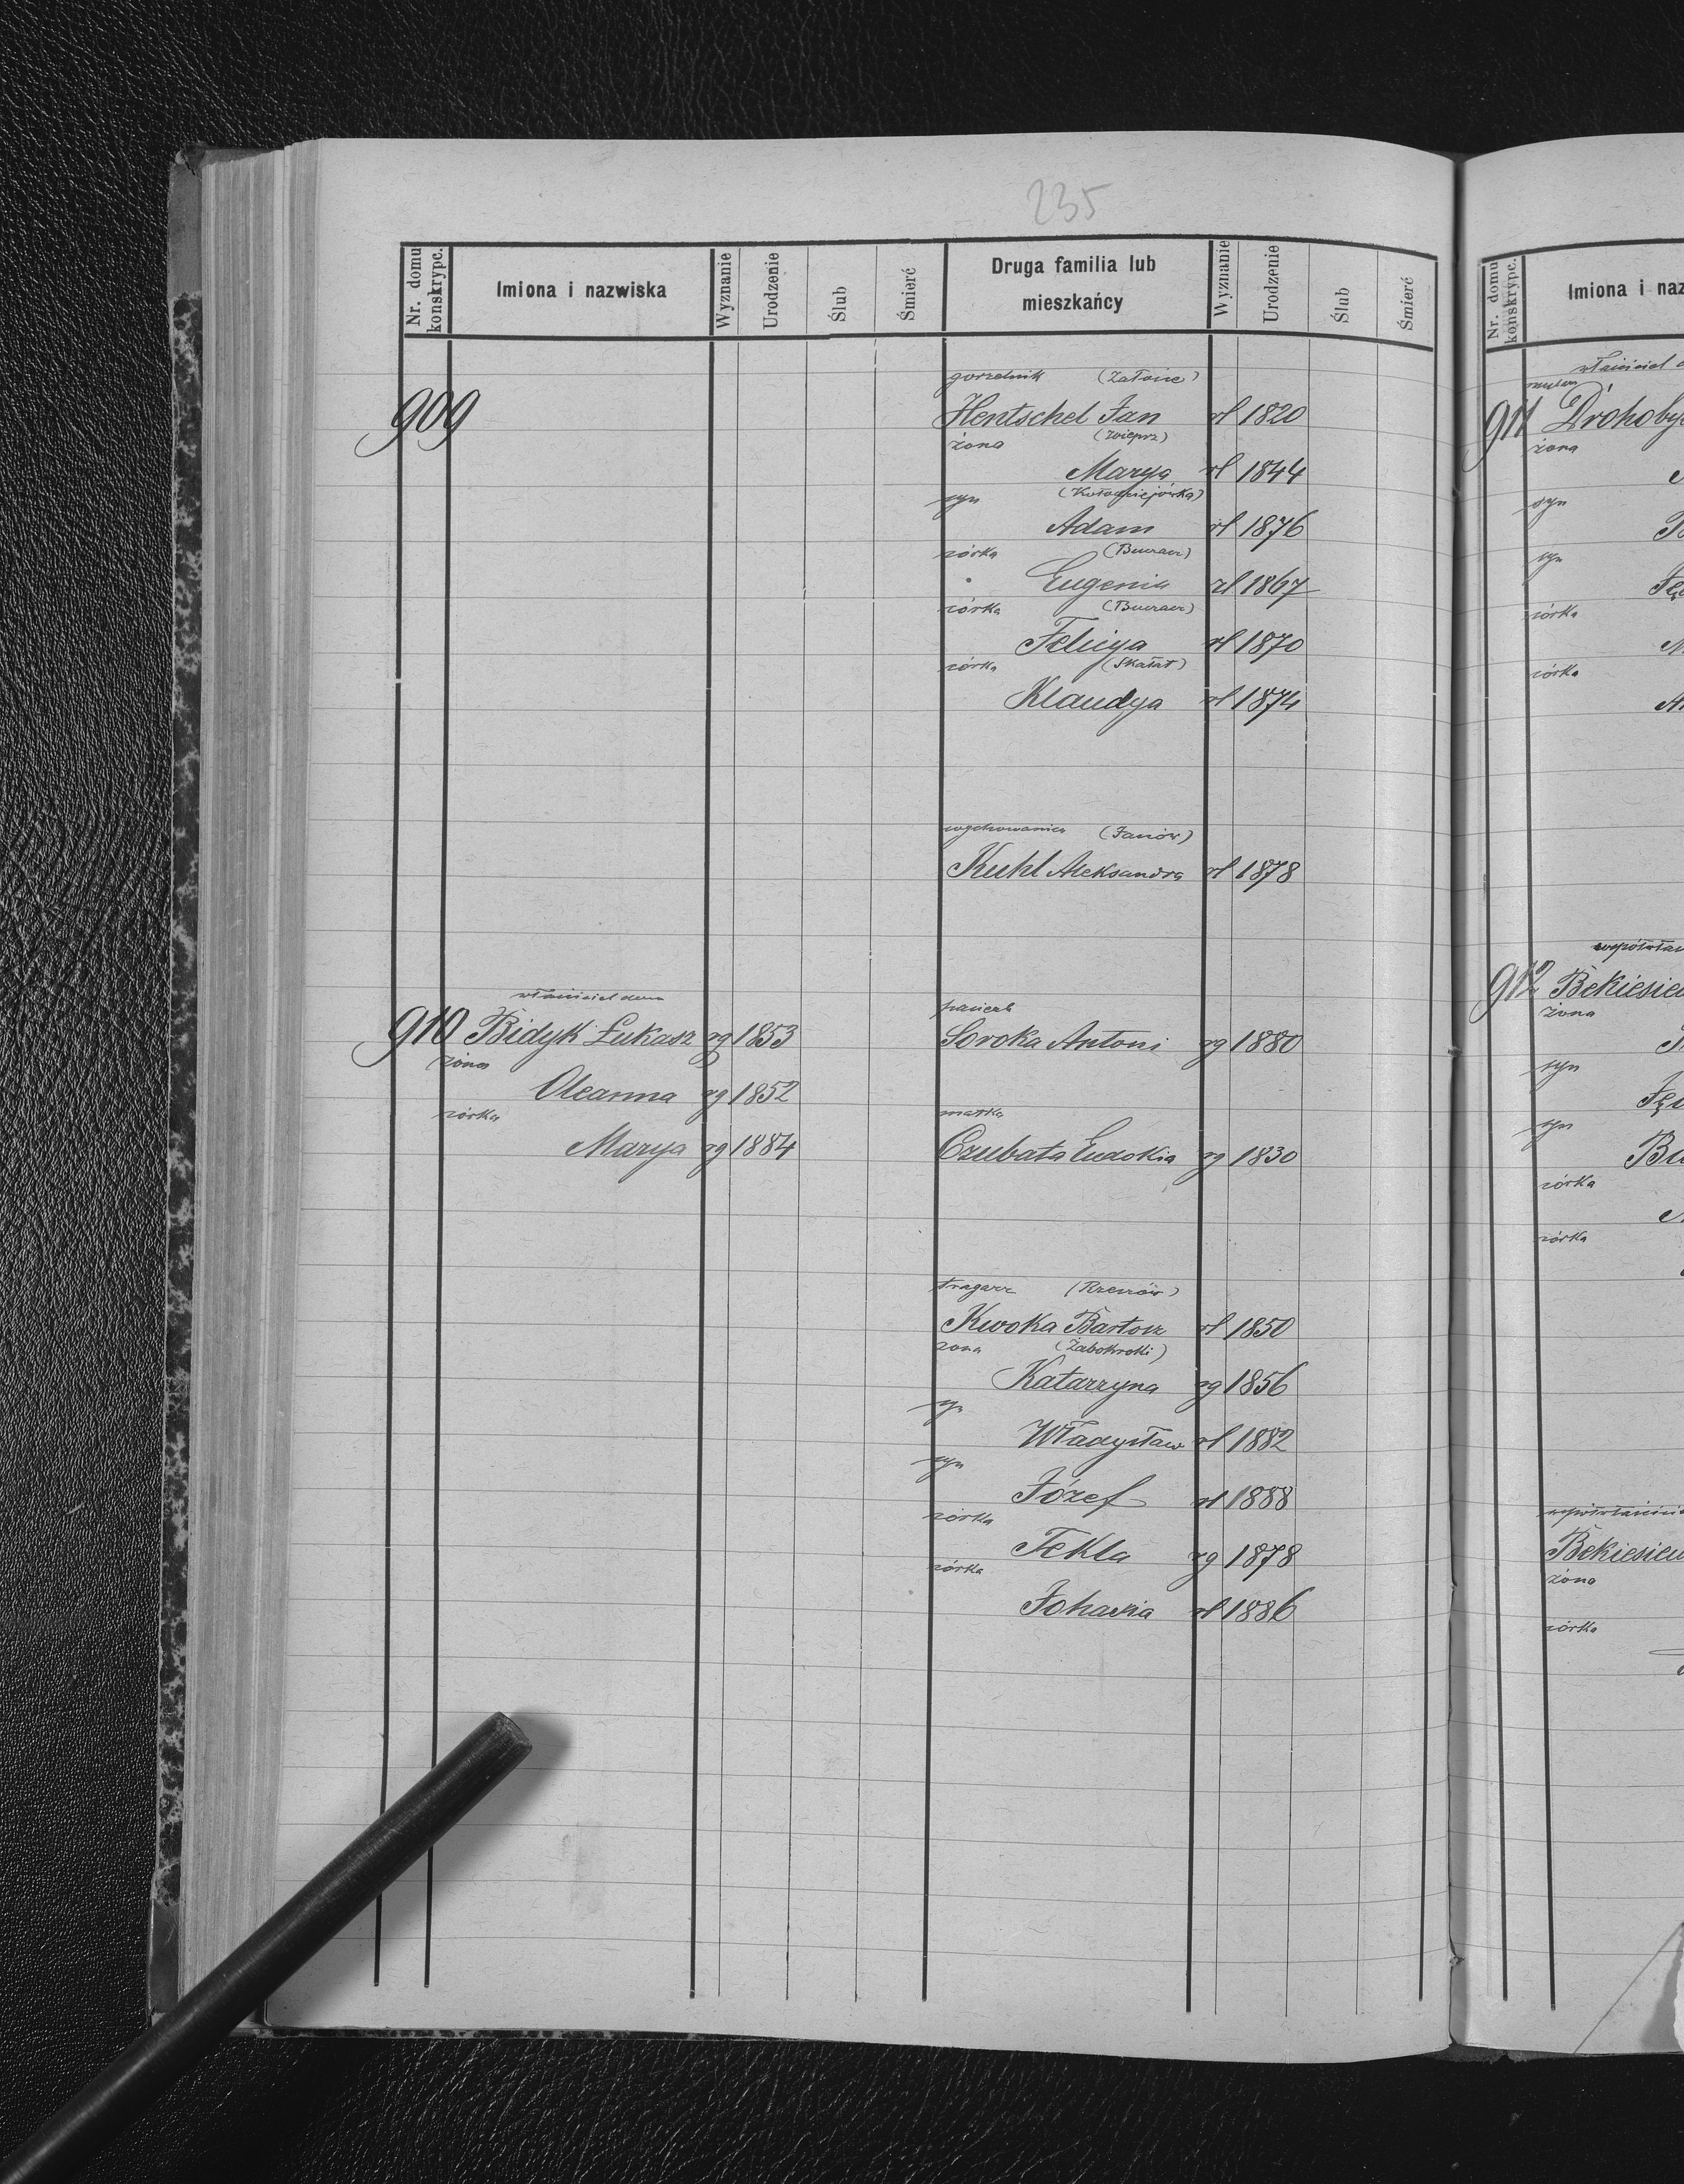 235
Nr. domu konskrypc.
Imiona i nazwiska
Wyznanie
Urodzenie
Ślub
Śmierć
Druga familia lub
mieszkańcy
Wyznanie
Urodzenie
Ślub
Śmierć
gorzelnik (Załoźce)
909 Hentschel Jan rł 1820
żona (Wieprz)
Marya rł 1844
syn (Kołodziejówka)
Adam rł 1876
córka
Eugenia rł 1867
córka
Felicya rł 1870
córka (Skałat)
Klaudya rł 1874
wychowanica (Janów)
Kuhl Aleksandra rł 1878
właściciel domu
pasierb
910 Bidyk Łukasz rg 1853 Soroka Antoni rg 1880
żona
Oleanna rg 1852
córka
matka
Marya rg 1884 Czubata Eudokia rg 1830
tragarz
Kwoka Bartosz rł 1850
żona (Zabokruki)
Katarzyna rg 1856
syn
Władysław rł 1882
syn
Józef rł 1888
córka
Tekla rg 1878
córka
Johanna rł 1886
Nr. domu konskrypc.
Imiona i naz
właściciel d
911 Drohoby
żona
syn
syn
córka
córka
współwłaś
912 Bekiesiew
żona
syn
syn
córka
córka
współwłaścici
Bekiesiew
żona
córka